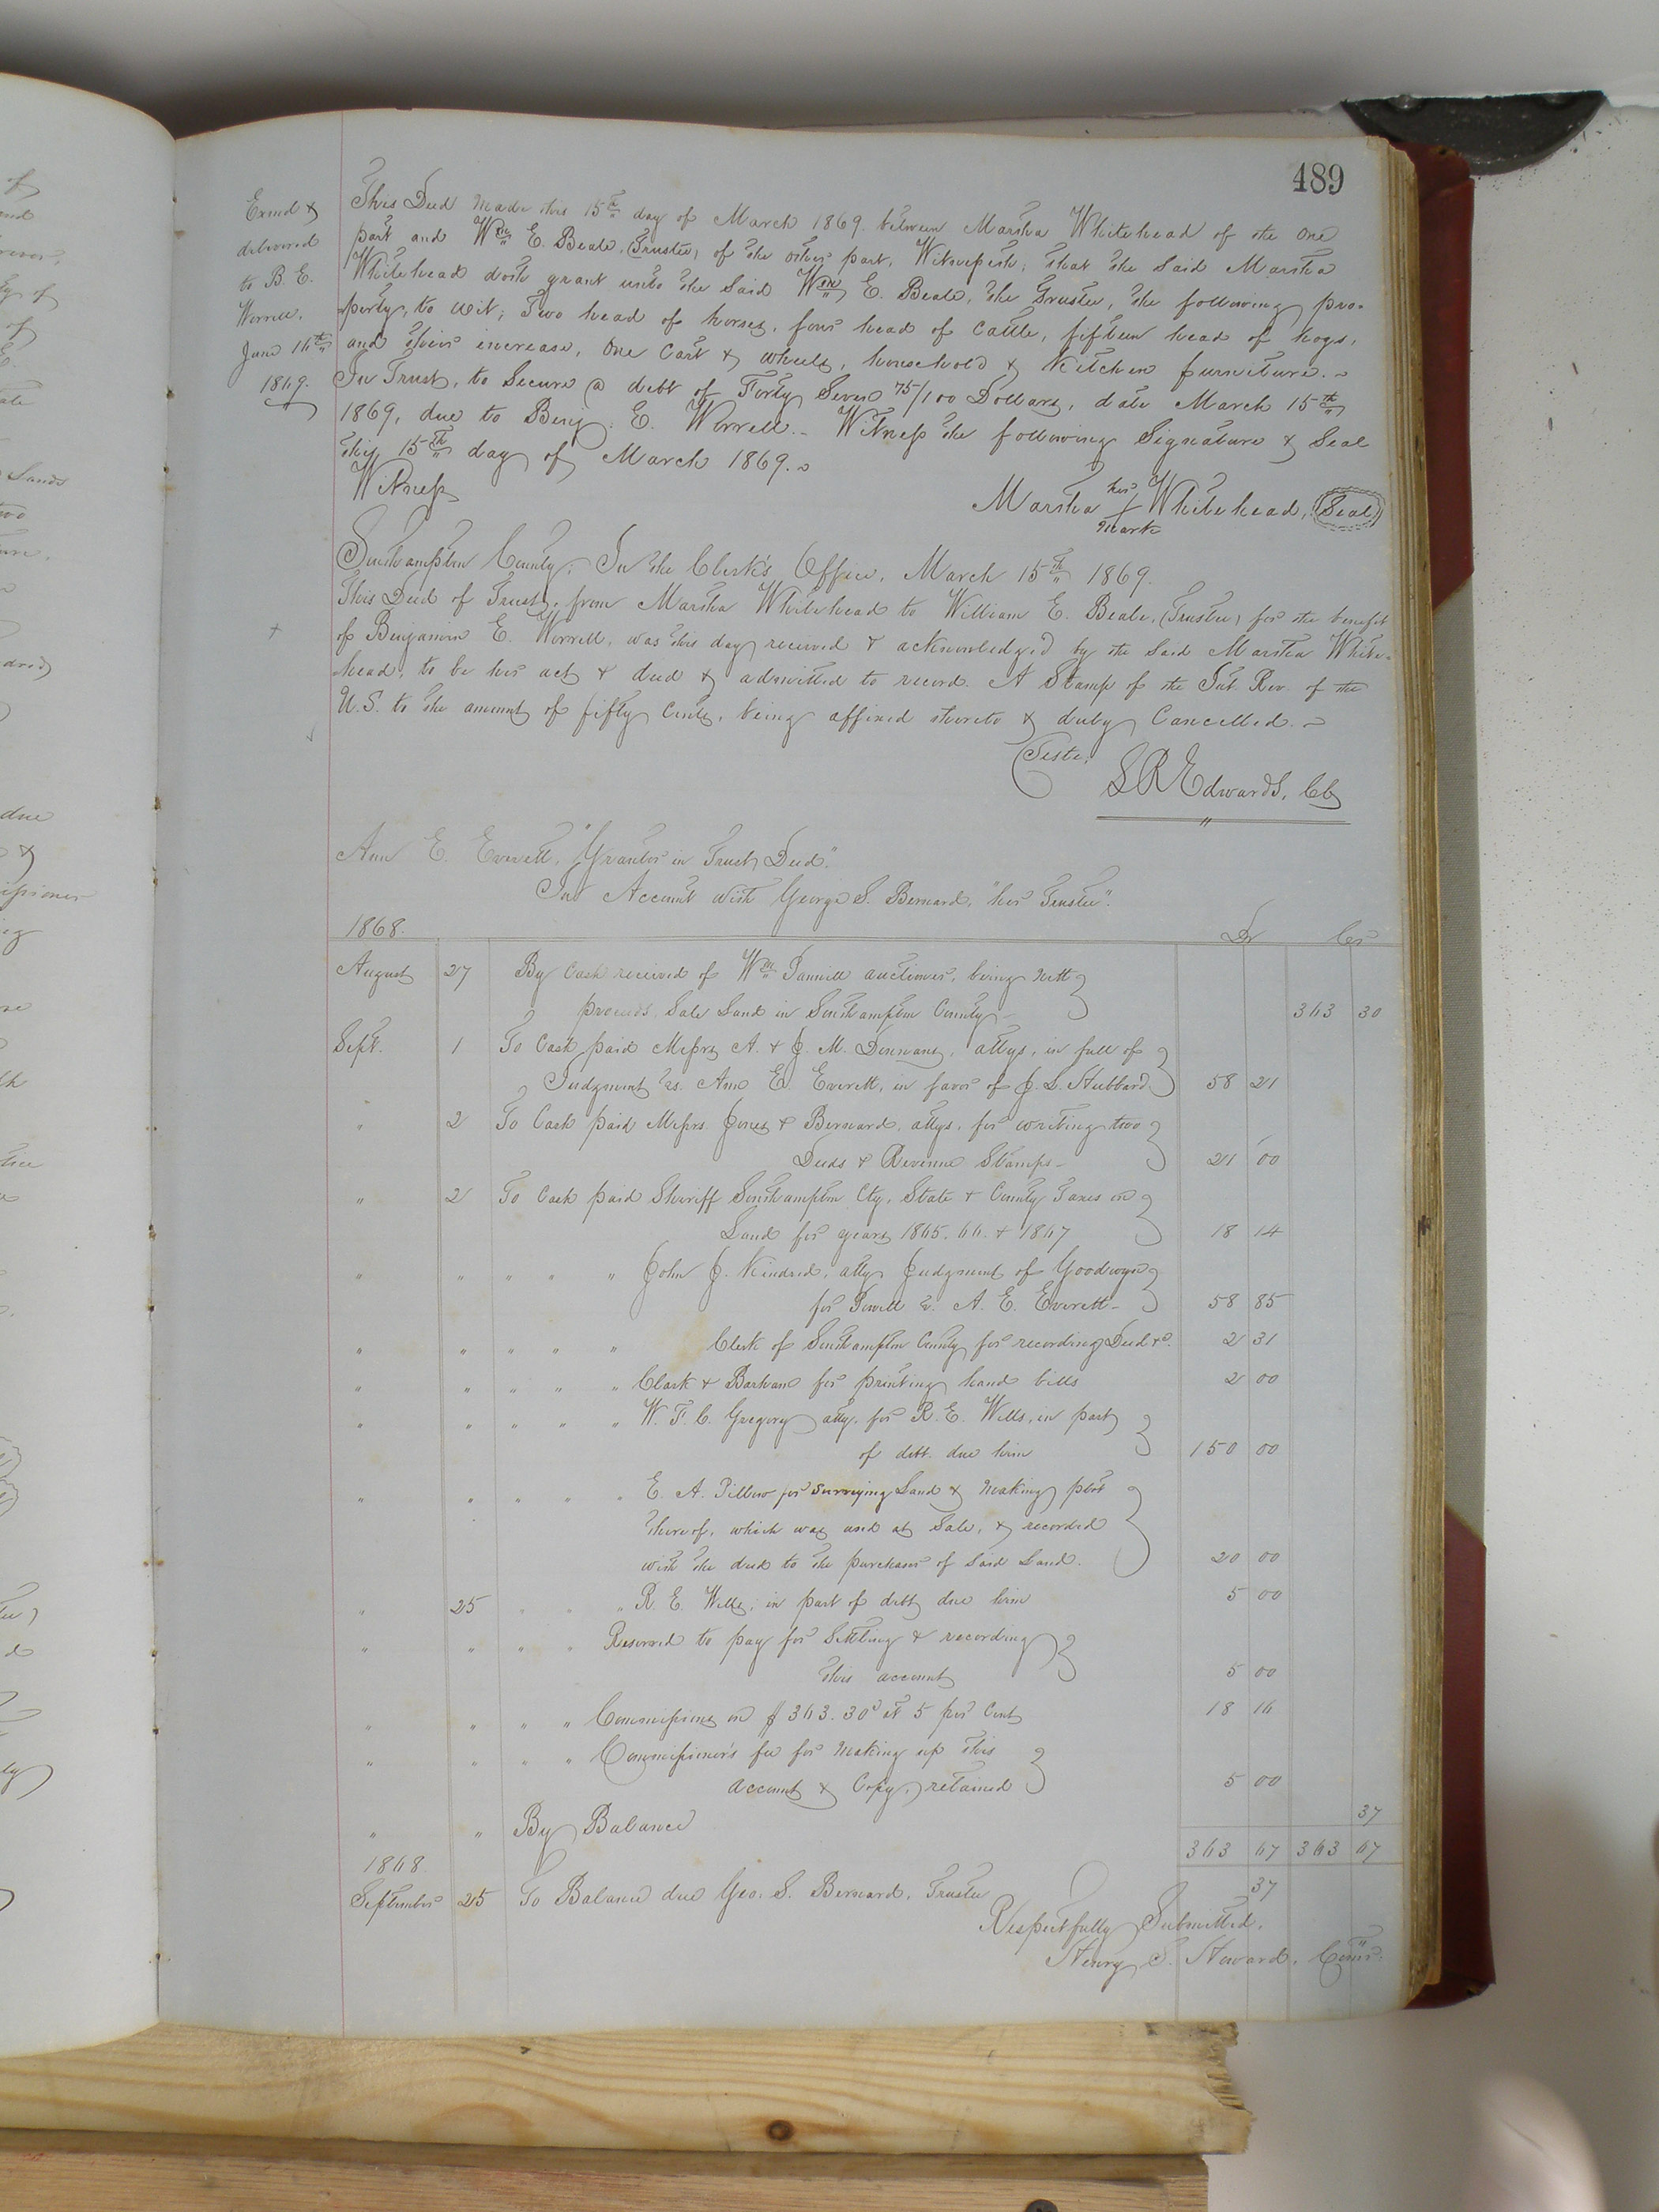 489
Exmd &
delivered
to B. E.
Worrell.
June 16th
1869.
This Deed made this 15th day of March 1869. between Marsha Whitehead of the one
part and Wm E. Beale, (Trustee) of the other part, Witnesseth; that the said Marsha
Whitehead doth grant unto the said Wm E. Beale, the Trustee, the following pro-
perty, to wit; Two head of horses, four head of cattle, fifteen head of hogs,
and their increase, One Cart & wheels, household & Kitchen furniture.
In Trust, to Secure a debt of Forty Seven 75/100 Dollars, date March 15th
1869, due to Benj. E. Worrell. Witness the following Signature & Seal
this 15th day of March 1869.
Witness
Marsha her Whitehead, Seal
mark
Southampton County; In the Clerk's Office, March 15th 1869.
This Deed of Trust, from Marsha Whitehead to William E. Beale, (Trustee) for the benefit
of Benjamin E. Worrell, was this day received & acknowledged by the said Marsha White-
head, to be her act & deed & admitted to record. A Stamp of the Int. Rev. of the
U.S. to the amount of fifty Cents, being affixed thereto & duly Cancelled.
Teste,
L R Edwards, Clk
Ann E. Everett, "Grantor in Trust Deed".
In Account with George S. Bernard, "her Trustee".
1868. Dr Cr
August 27 By Cash received of Wm Pannill auctioneer, being nett
proceeds Sale Land in Southampton County 363 30
Sept. 1 To Cash paid Messrs A. & J. M. Donnans, attys, in full of
Judgment vs. Ann E. Everett, in favor of J. L. Hubbard 58 21
" 2 To Cash paid Messrs. Jones & Bernard, attys. for writing two
Deeds & Revenue Stamps 21 00
" 2 To Cash paid Sheriff Southampton Cty, State & County Taxes on
Land for years 1865. 66. & 1867 18 14
" " " " " John J. Kindred, atty Judgment of Goodwyn
for Powell v. A. E. Everett 58 85
" " " " " Clerk of Southampton County for recording Deed &c. 2 31
" " " " " Clark & Barham for printing hand bills 2 00
" " " " " W. F. C. Gregory atty. for R. E. Wells, in part
of debt due him 150 00
" " " " " E. A. Pillow for Surveying Land & Making plot
thereof, which was used at Sale, & recorded
with the deed to the purchaser of Said Land. 20 00
" 25 " " " R. E. Wells, in part of debt due him 5 00
" " " " Reserved to pay for Settling & recording
this account 5 00
" " " " Commissions on $363.30c at 5 per Cent 18 16
" " " " Commissioner's fee for Making up this
account & Copy, retained 5 00
" " By Balance 37
363 67 363 67
1868
September 25 To Balance due Geo. S. Bernard, Trustee 37
Respectfully Submitted,
Henry S. Howard, Comr.